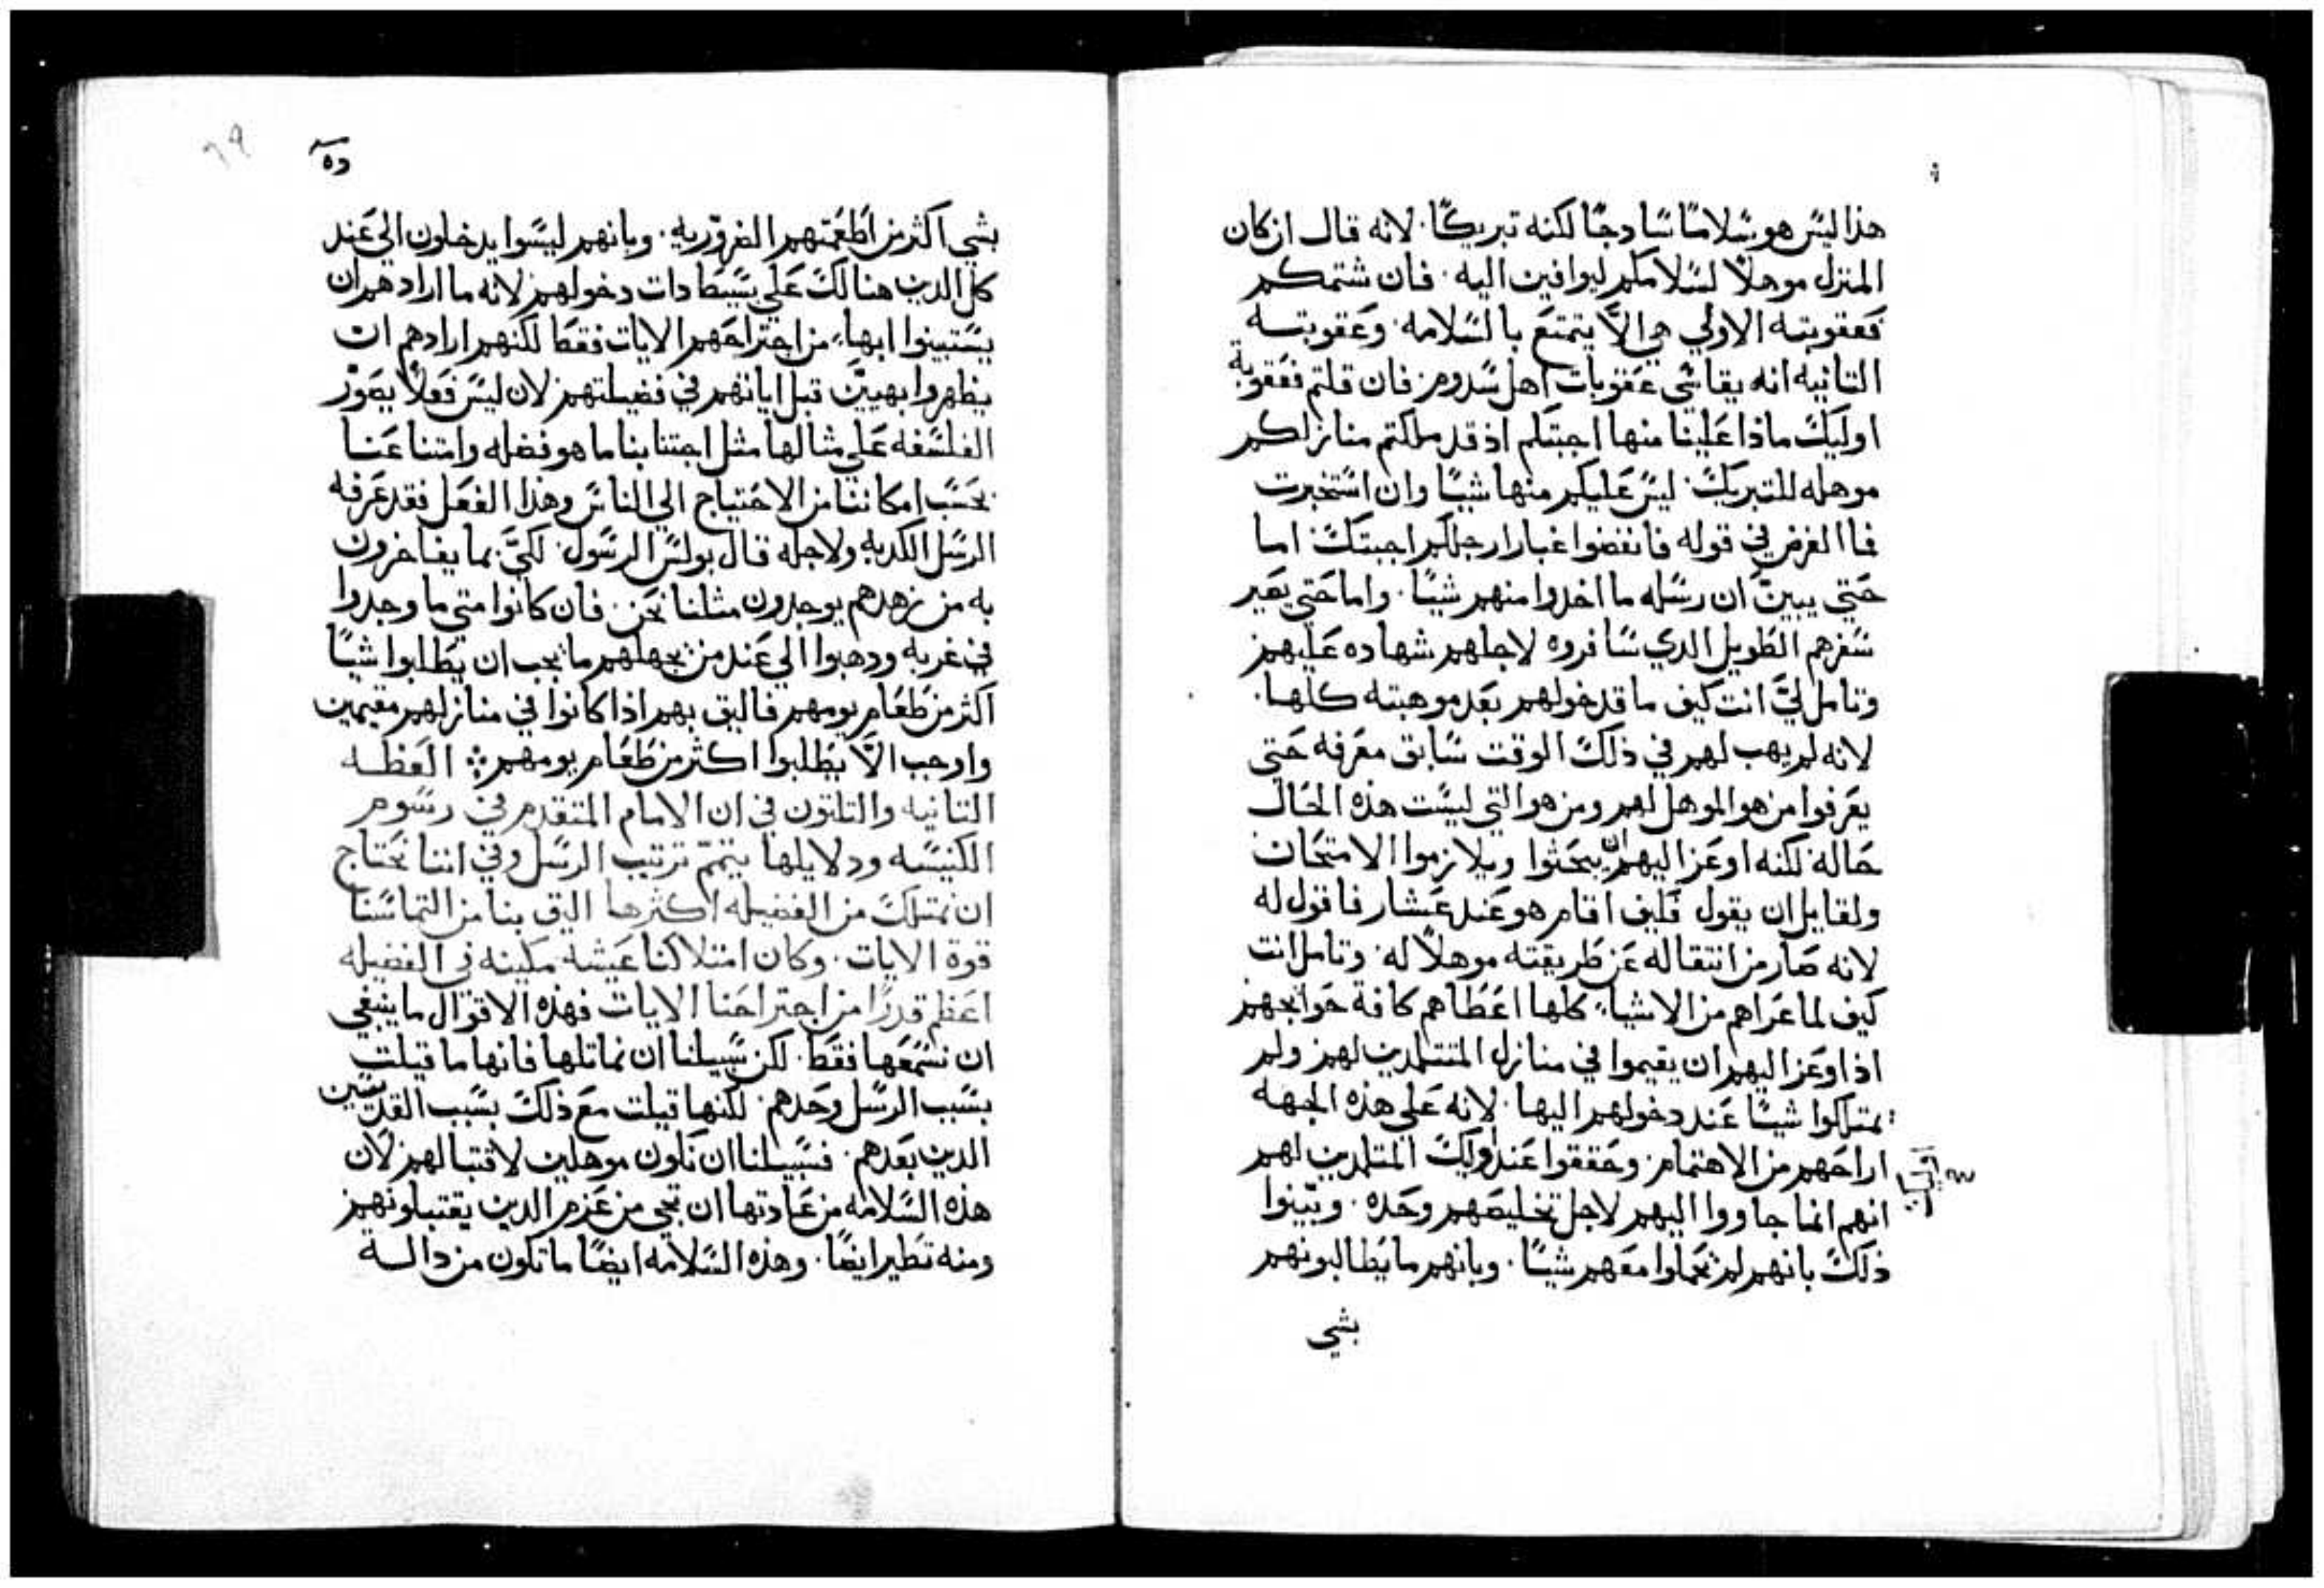 هذا ليس هو سلاما سادجا لكنه تبريكا. لانه قال ان كان
المنزل موهلا لسلامكم ليوافين اليه. فان شتمكم
فعقوبته الاولي هي الا يتمتع بالسلامه. وعقوبته
التانيه انه يقاسي عقوبات اهل سدوم. فان قلتم فعقوبة
اوليك ماذا علينا منها اجبتكم اذ قد ملكتم منازلكم
موهله للتبريك. ليس عليكم منها شيا وان استخبرت
فما الغرض في قوله فانفضوا غبار ارجلكم اجبتك. اما
حتي يبين ان رسله ما اخدوا منهم شيا. واما حتي يصير
سفرهم الطويل الدي سافروه لاجلهم شهاده عليهم.
وتامل لي انت كيف ما قد خولهم بعد موهبته كلها.
لانه لم يهب لهم في ذلك الوقت سابق معرفه حتي
يعرفوا من هو الموهل لهم ومن هو التي ليست هذه الحال
حاله. لكنه اوعز اليهم ان يبحثوا ويلازموا الامتحان
ولقايل ان يقول فكيف اقام هو عند عشار فاقول له
لانه صار من انتقاله عن طريقته موهلا له. وتامل انت
كيف لما عراهم من الاشيا كلها اعطاهم كافة حوايجهم.
اذ اوعز اليهم ان يقيموا في منازل المتتلمدين لهم. ولم
يمتلكوا شيا عند دخولهم اليها. لانه علي هذه الجهه
اراحهم من الاهتمام. وحققوا عند اوليك المتلمدين لهم
انهم انما جاووا اليهم لاجل تخليصهم وحده. وبينوا
ذلك بانهم لم يحملوا معهم شيا. وبانهم ما يطالبونهم
بشي
بشي اكثر من اطعمتهم الضروريه. وبانهم ليسوا يدخلون الي عند
كل الدين هنالك علي بسيطا دات دخولهم. لانه ما ارادهم ان
يستبينوا ابهيا من اجتراحهم الايات فقط لكنهم ارادهم ان
يظهروا بهيين قبل اياتهم في فضيلتهم. لان ليس فعلا يصور
الفلسفه علي مثالها مثل اجتنابنا ما هو فضله وامتناعنا
بحسب امكاننا من الاحتياج الي الناس وهذا الفعل فقد عرفه
الرسل الكدبه ولاجله قال بولس الرسول. لكي بما يفاخرون
به من زهدهم يوجدون مثلنا نحن. فان كانوا متي ما وجدوا
في غربه ودهبوا الي عند من يجهلهم ما يجب ان يطلبوا شيا
اكثر من طعام يومهم فاليق بهم اذا كانوا في منازلهم مقيمين
واوجب الا يطلبوا اكثر من طعام يومهم: العظه
التانيه والتلتون في ان الامام المتقدم في رسوم
الكنيسه ودلايلها يتمم ترتيب الرسل وفي اننا نحتاج
ان نمتلك من الفضيله اكثرها اليق بنا من التماسنا
قوة الايات. وكان امتلاكنا عيشه مكينه في الفضيله
اعظم قدرا من اجتراحنا الايات فهذه الاقوال ما ينبغي
ان نسمعها فقط. لكن سبيلنا ان نماتلها فانها ما قيلت
بسبب الرسل وحدهم. لكنها قيلت مع ذلك بسبب القديسين
الدين بعدهم. فسبيلنا ان نكون موهلين لاقتبالهم. لان
هذه السلامه من عادتها ان تجي من عزم الدين يقتبلونهم.
ومنه تطير ايضا. وهذه السلامه ايضا ما تكون من دالة